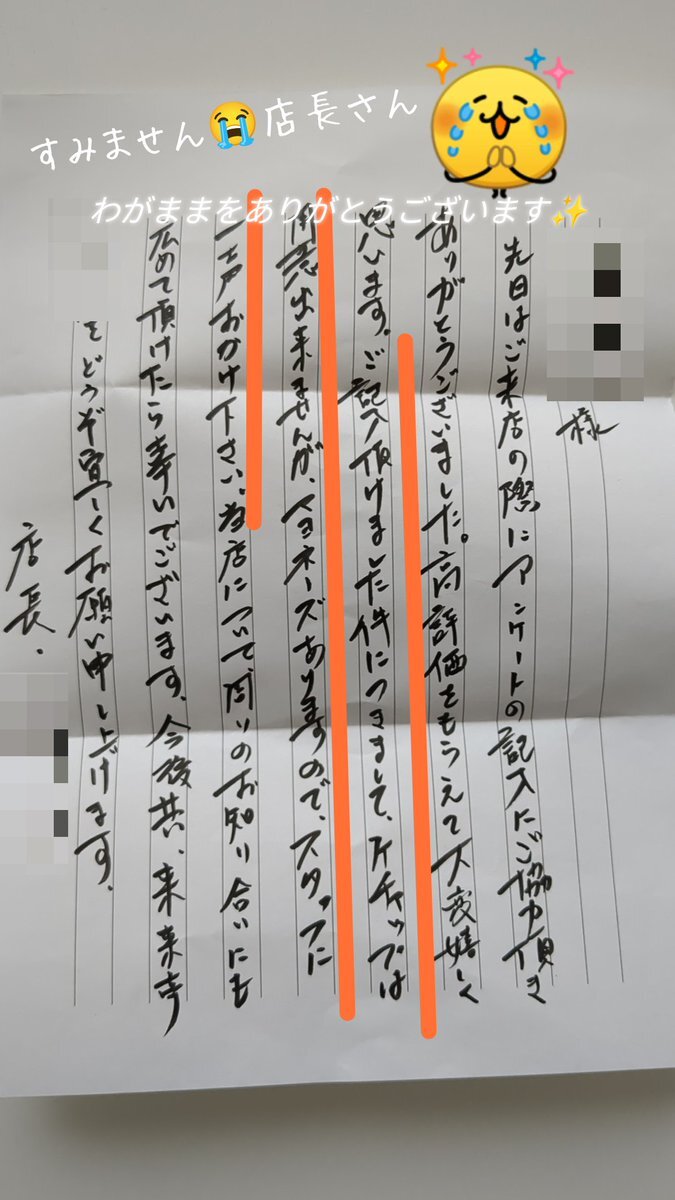 すみません😭店長さん
わがままをありがとうございます✨
様
先日はご来店の際にアンケートの記入にご協力頂き
ありがとうございました。高評価をもらえて大変嬉しく
思います。ご記入頂けました件につきまして、ケチャップは
用意出来ませんが、マヨネーズありますので、スタッフに
一声おかけ下さい。当店について周りのお知り合いにも
広めて頂けたら幸いでございます。今後共、来来亭
をどうぞ宜しくお願い申し上げます。
店長.